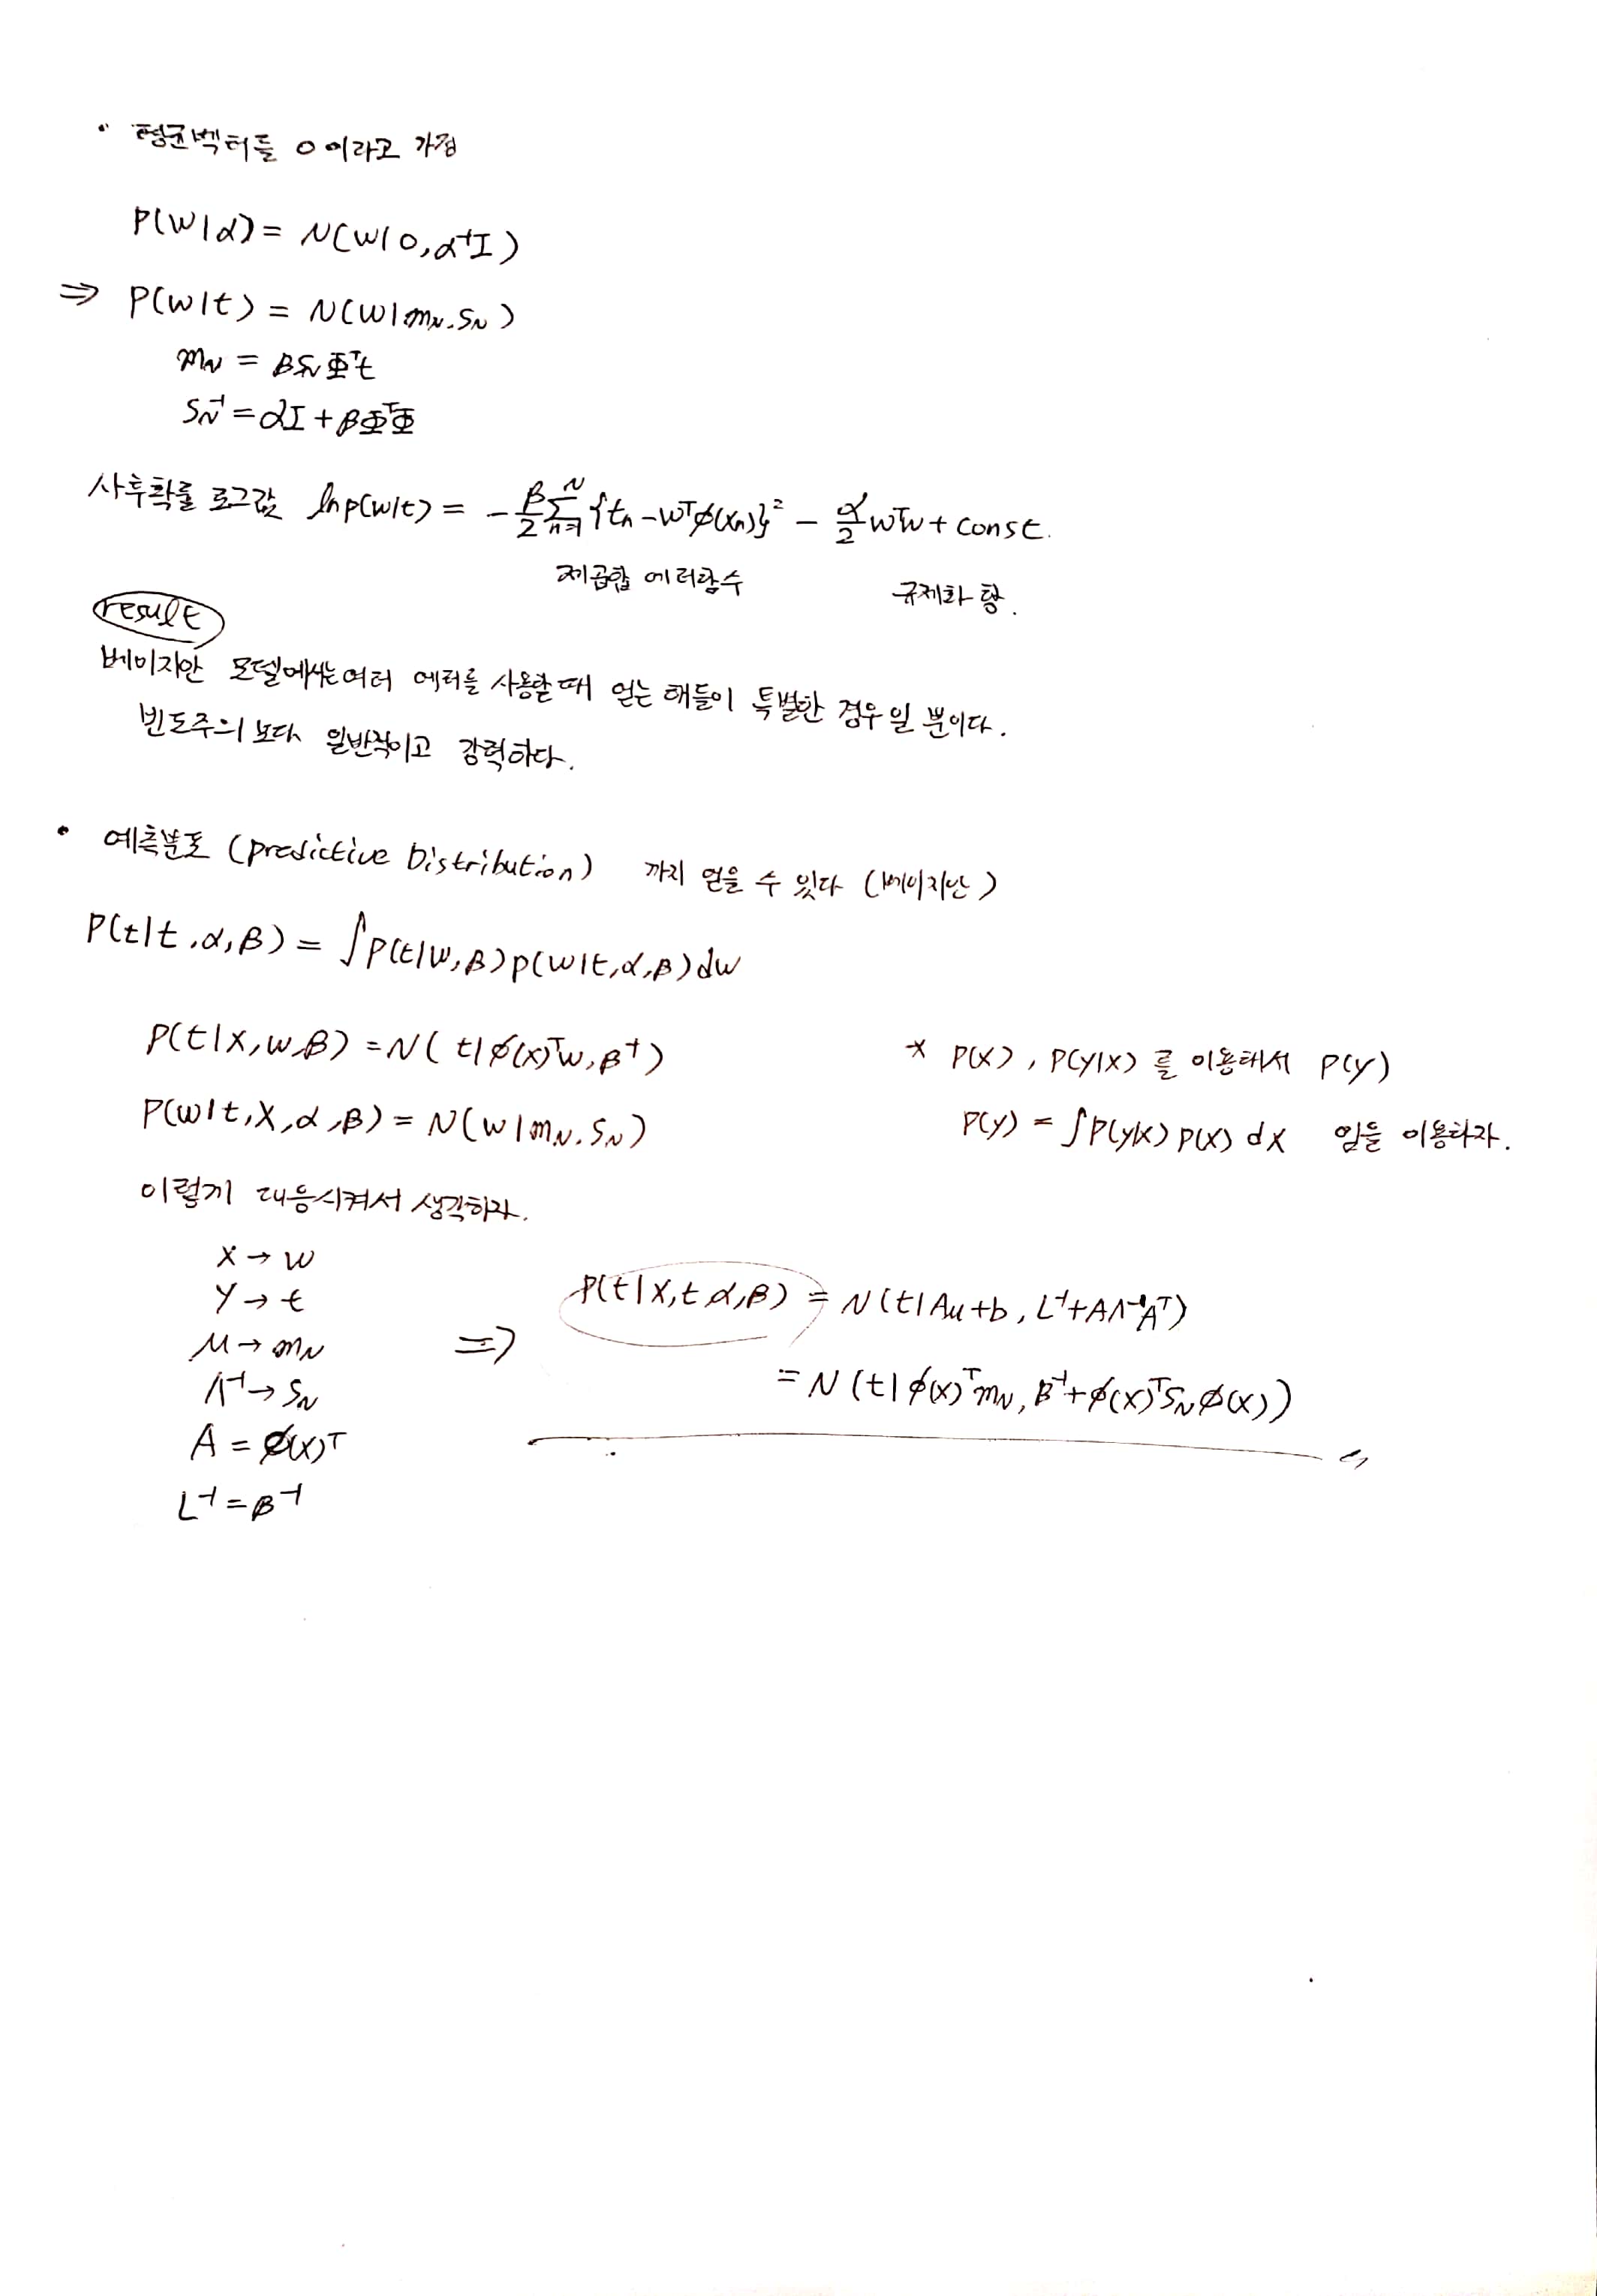 · 평균벡터를 0이라고 가정
P(w|α) = N(w|0, α⁻¹I)
⇒ P(w|t) = N(w|m_N, S_N)
m_N = βS_NΦᵀt
S_N⁻¹ = αI + βΦᵀΦ
사후확률 로그값 ln p(w|t) = -β/2 Σ_{n=1}^{N} {t_n - wᵀφ(x_n)}² - α/2 wᵀw + const.
제곱합 에러함수 규제화 항.
result
베이지안 모델에서는 여러 에러를 사용할 때 얻는 해들이 특별한 경우일 뿐이다.
빈도주의 보다 일반적이고 강력하다.
· 예측분포 (Predictive Distribution) 까지 얻을 수 있다 (베이지안)
P(t|t, α, β) = ∫P(t|w, β)p(w|t, α, β)dw
P(t|x, w, β) = N(t|φ(x)ᵀw, β⁻¹)
* P(x), P(y|x) 를 이용해서 P(y)
P(w|t, X, α, β) = N(w|m_N, S_N)
P(y) = ∫P(y|x) P(x) dx 임을 이용하자.
이렇게 대응시켜서 생각하자.
x → w
y → t
μ → m_N
Λ⁻¹ → S_N
A = φ(x)ᵀ
L⁻¹ = β⁻¹
⇒ P(t|x, t, α, β) = N(t|Aμ+b, L⁻¹+AΛ⁻¹Aᵀ)
= N(t|φ(x)ᵀm_N, β⁻¹+φ(x)ᵀS_Nφ(x))